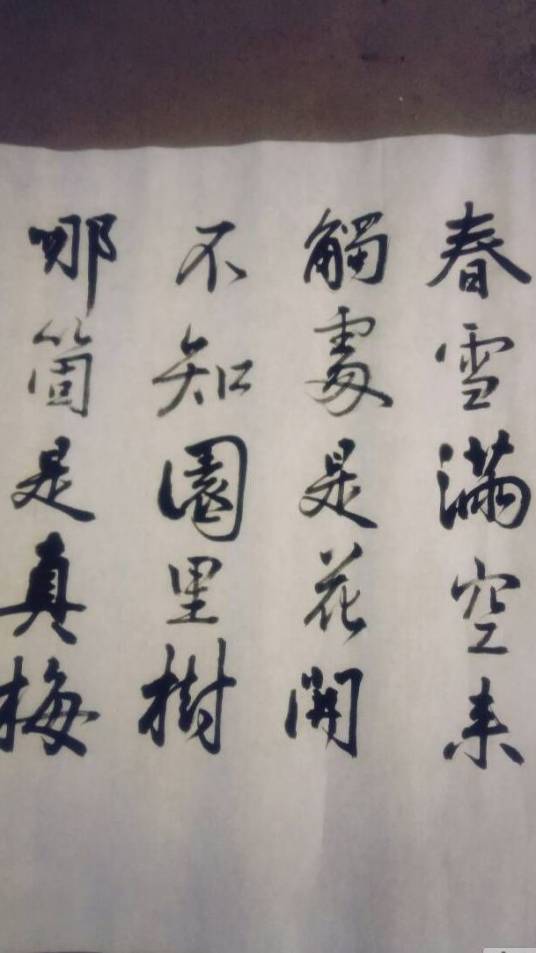 春雪滿空来
觸處是花開
不知園里樹
哪箇是真梅